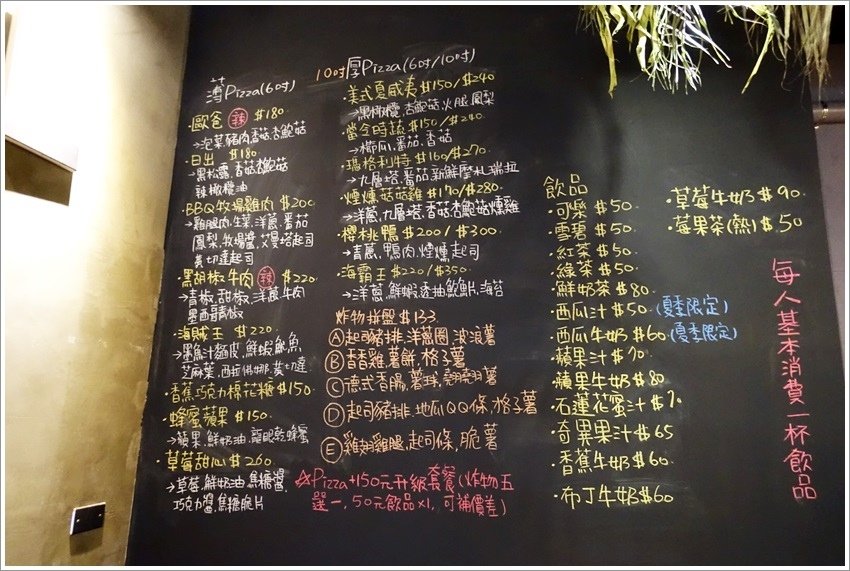 薄Pizza(6吋)
·歐爸 辣 $180
→泡菜豬肉.香菇.杏鮑菇
·日出 $180
→黑松露.香菇.杏鮑菇
辣橄欖油
·BBQ牧場雞肉 $200
→雞腿肉.生菜.洋蔥.番茄
鳳梨.牧場醬.艾曼塔起司
黃切達起司
·黑胡椒牛肉 辣 $220
→青椒.甜椒.洋蔥.牛肉
墨西哥辣椒
·海賊王 $220
→墨魚汁麵皮.鮮蝦.魷魚
芝麻葉.西拉佛娜.黃切達
·香蕉巧克力棉花糖 $150
·蜂蜜蘋果 $150
→蘋果.鮮奶油.龍眼乾.蜂蜜
·草莓甜心 $260
→草莓.鮮奶油.焦糖醬
巧克力醬.焦糖脆片
10吋厚Pizza(6吋/10吋)
·美式夏威夷 $150/$240
→黑橄欖.杏鮑菇.火腿.鳳梨
·當令時蔬 $150/$240
→櫛瓜.番茄.香菇
·瑪格利特 $160/$270
→九層塔.番茄.新鮮摩札瑞拉
·煙燻菇菇雞 $170/$280
→洋蔥.九層塔.香菇.杏鮑菇.燻雞
·櫻桃鴨 $200/$300
→青蔥.鴨肉.煙燻起司
·海霸王 $220/$350
→洋蔥.鮮蝦.透抽.鮑片.海苔
炸物拼盤 $133
Ⓐ起司豬排.洋蔥圈.波浪薯
Ⓑ香香雞.薯餅.格子薯
Ⓒ德式香腸.薯球.翹翹薯
Ⓓ起司豬排.地瓜QQ條.格子薯
Ⓔ雞翅雞腿.起司條.脆薯
☆Pizza+150元升級套餐(炸物五
選一,50元飲品x1,可補價差)
飲品
·可樂 $50
·雪碧 $50
·紅茶 $50
·綠茶 $50
·鮮奶茶 $80
·西瓜汁 $50 (夏季限定)
·西瓜牛奶 $60 (夏季限定)
·蘋果汁 $70
·蘋果牛奶 $80
·石蓮花蜜汁 $70
·奇異果汁 $65
·香蕉牛奶 $60
·布丁牛奶 $60
·草莓牛奶 $90
·莓果茶(熱) $50
每人基本消費一杯飲品